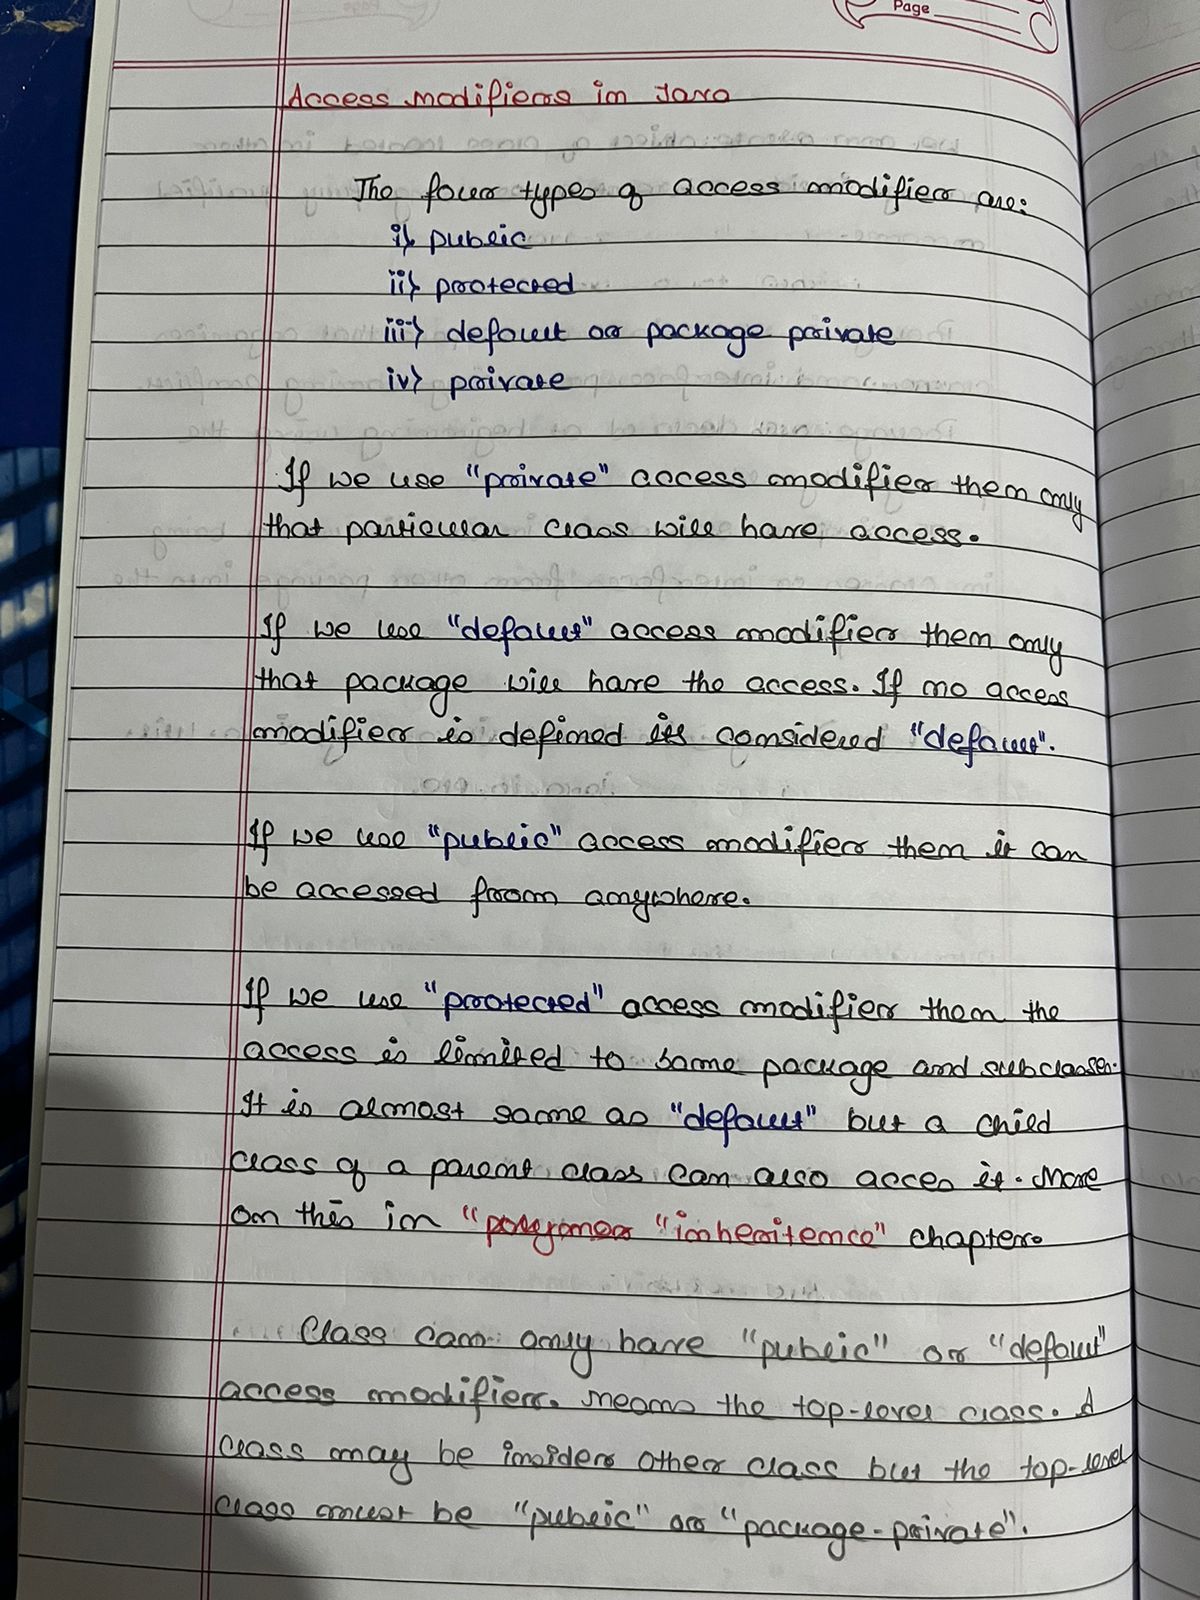 Page
Access modifiers in Java
The four types of access modifier are:
i) public
ii) protected
iii) default or package private
iv) private
If we use "private" access modifier then only
that particular class will have access.
If we use "default" access modifier then only
that package will have the access. If no access
modifier is defined its considered "default".
If we use "public" access modifier then it can
be accessed from anywhere.
If we use "protected" access modifier then the
access is limited to same package and subclasses.
It is almost same as "default" but a child
class of a parent class can also acces it. More
on this in "polymer "inheritence" chapter.
Class can only have "public" or "default"
access modifier. Means the top-level class. A
class may be insider other class but the top-level
class must be "public" or "package-private".